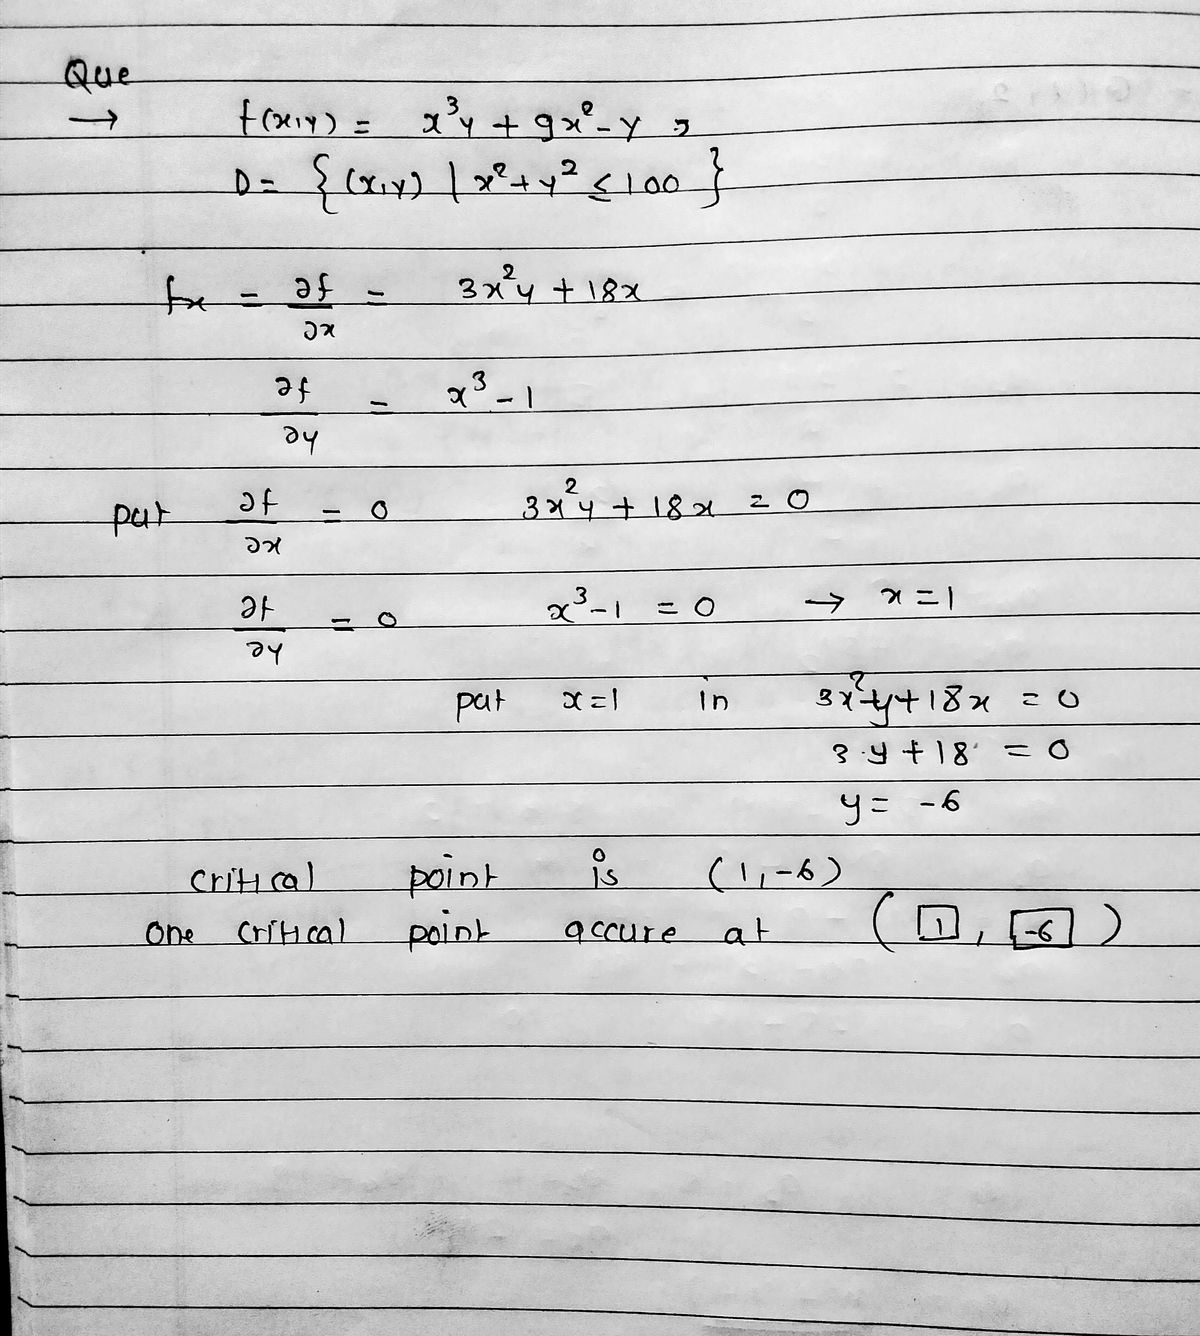 Que
→ f(x,y) = x³y + 9x² - y ,
D = { (x,y) | x² + y² ≤ 100 }
fx = ∂f/∂x = 3x²y + 18x
∂f/∂y = x³ - 1
put ∂f/∂x = 0 3x²y + 18x = 0
∂f/∂y = 0 x³ - 1 = 0 → x = 1
put x = 1 in 3x²y + 18x = 0
3·y + 18 = 0
y = -6
critical point is (1, -6)
One critical point accure at ( 1 , -6 )